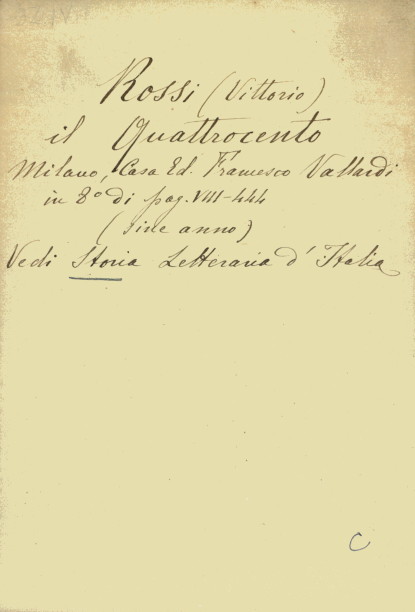 Rossi (Vittorio)
il Quattrocento
Milano, Casa Ed. Francesco Vallardi
in 8° di pag. VIII-444
(sine anno)
Vedi Storia Letteraria d'Italia
C